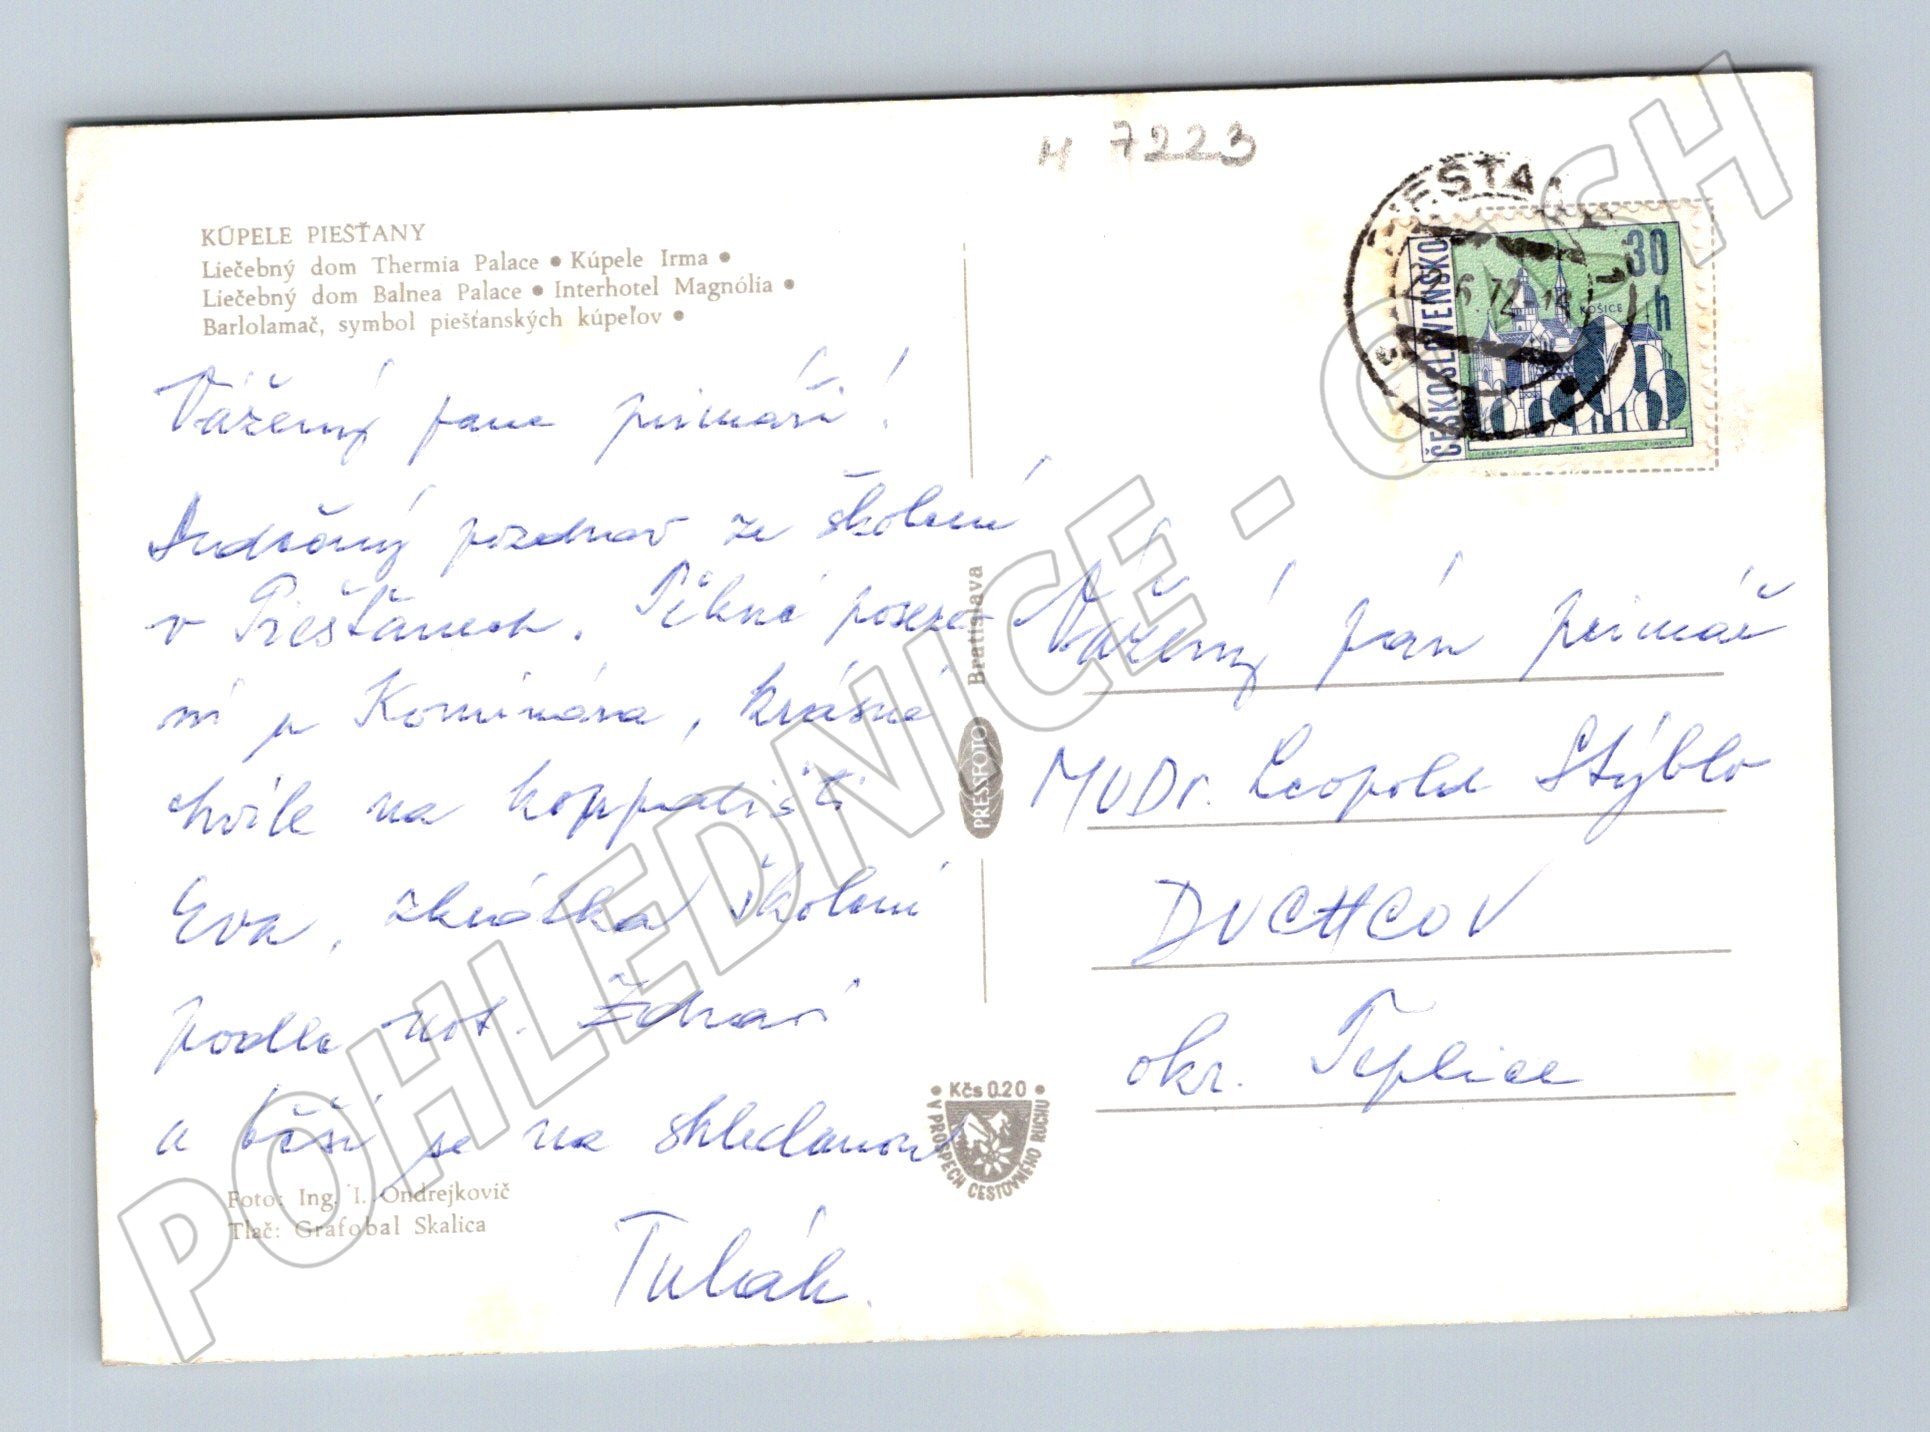 M 7223
KÚPELE PIEŠŤANY
Liečebný dom Thermia Palace • Kúpele Irma •
Liečebný dom Balnea Palace • Interhotel Magnólia •
Barlolamač, symbol piešťanských kúpeľov •
Vážený pane primáři!
Srdečný pozdrav ze školení
v Piešťanech. Pěkné poseze-
ní u Komínára, krásné
chvíle na koppališti
Eva, zkrátka školení
podle not. Zdraví
a těší se na shledanou
Foto: Ing. I. Ondrejkovič
Tlač: Grafobal Skalica
Bratislava
PRESSFOTO
Kčs 0.20
V PROSPECH CESTOVNÉHO RUCHU
ČESKOSLOVENSKO
30 h
KOŠICE
22.6.72-14
Vážený pán primář
MUDr. Leopold Stýblo
DUCHCOV
okr. Teplice
POHLEDNICE - CASH